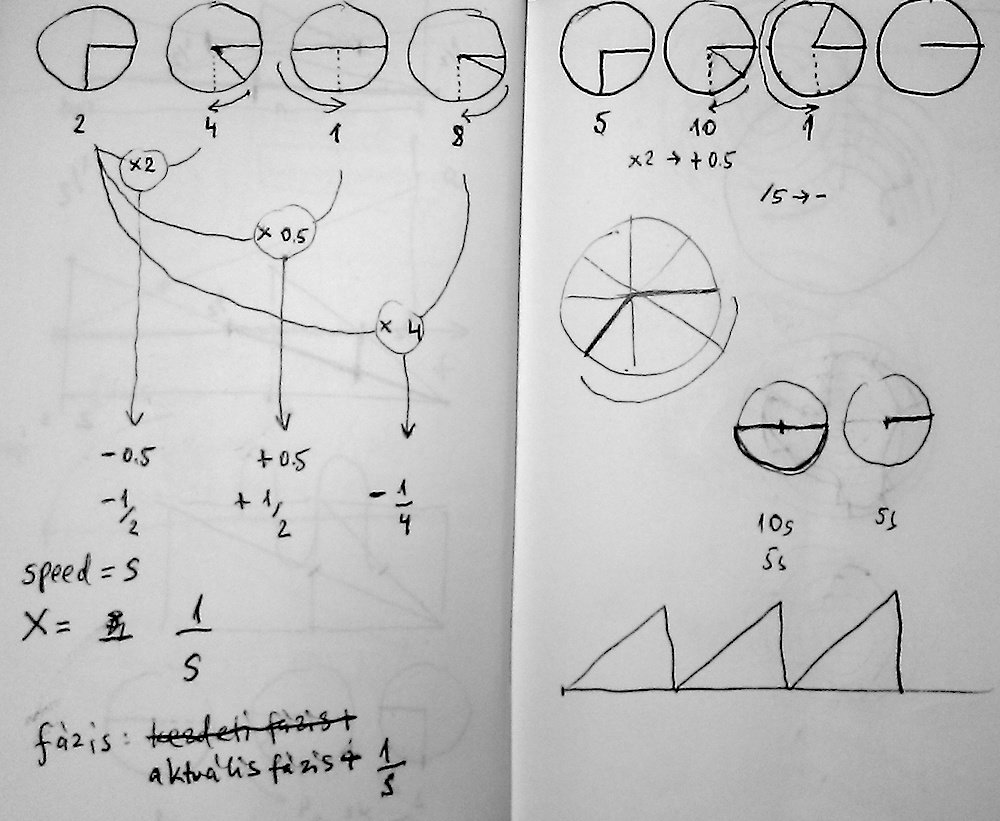 2 4 1 8
×2
× 0.5
× 4
-0.5 +0.5
-1/2 +1/2 -1/4
speed = S
X = 1/S
fázis: kezdeti fázis +
aktuális fázis + 1/S
5 10 1
×2 → +0.5
/5 → -
10s 5s
5s